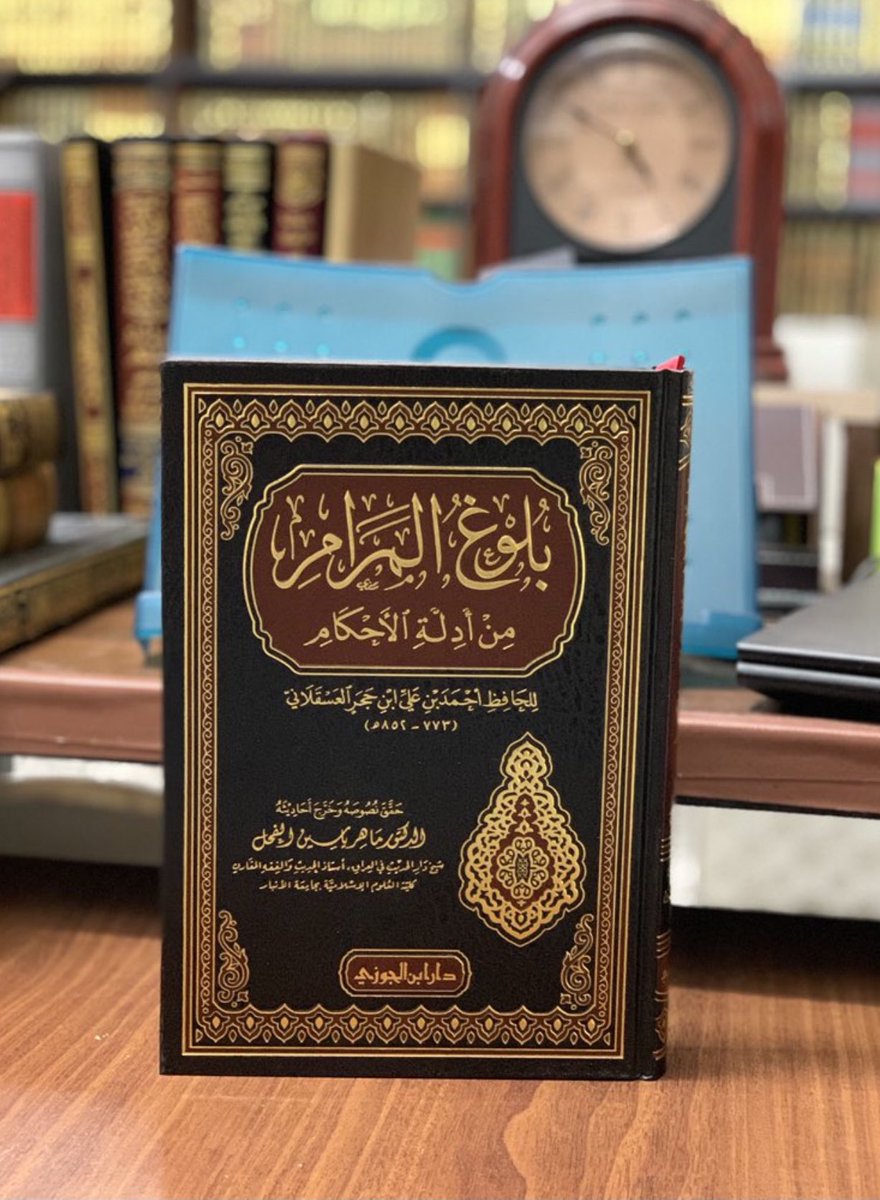 بُلُوْغُ المَرَامِ
مِنْ أَدِلَّةِ الأَحْكَامِ
لِلْحَافِظِ أَحْمَدَ بْنِ عَلِيِّ ابْنِ حَجَرٍ العَسْقَلَانِيّ
(٧٧٣ - ٨٥٢ هـ)
حَقَّقَ نُصُوصَهُ وَخَرَّجَ أَحَادِيْثَهُ
الدكتور ماهر ياسين الفحل
شيخ دار الحديث في العراق، أستاذ الحديث والفقه المقارن
كلية العلوم الإسلامية بجامعة الأنبار
دار ابن الجوزي